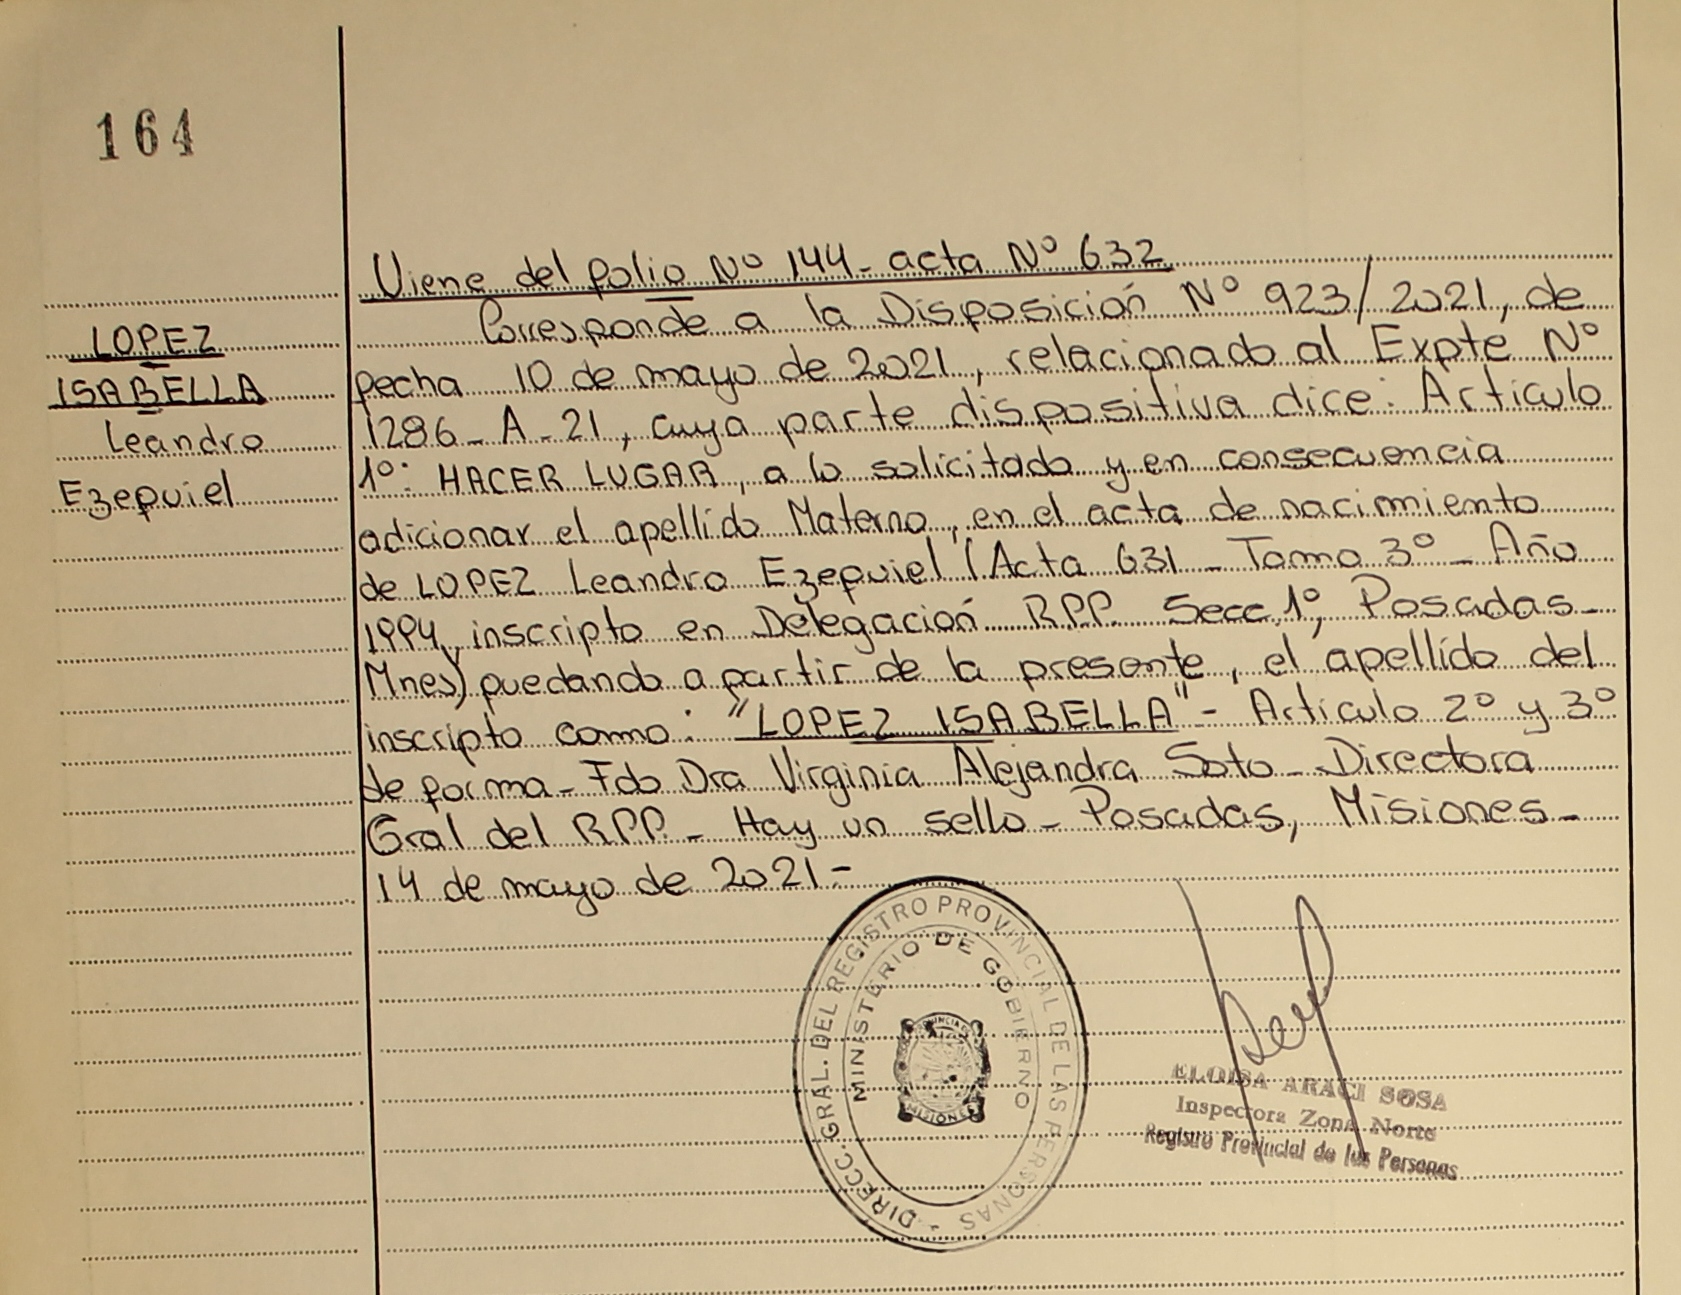 164
Viene del folio Nº 144- acta Nº 632
LOPEZ
ISABELLA
Leandro
Ezequiel
Corresponde a la Disposición Nº 923/2021, de
fecha 10 de mayo de 2021, relacionado al Expte Nº
1286- A - 21, cuya parte dispositiva dice: Artículo
1º: HACER LUGAR, a lo solicitado y en consecuencia
adicionar el apellido Materno, en el acta de nacimiento
de LOPEZ Leandro Ezequiel (Acta 631 - Tomo 3º - Año
1994, inscripto en Delegación RPP. Secc 1º, Posadas-
Mnes) quedando a partir de la presente, el apellido del
inscripto como: "LOPEZ ISABELLA"- Artículo 2º y 3º
de forma- Fdo Dra Virginia Alejandra Soto- Directora
Gral del RPP.- Hay un sello- Posadas, Misiones-
14 de mayo de 2021-
DIRECC. GRAL. DEL REGISTRO PROVINCIAL DE LAS PERSONAS -
MINISTERIO DE GOBIERNO
PROVINCIA DE
MISIONES
ELOISA ARACI SOSA
Inspectora Zona Norte
Registro Provincial de las Personas